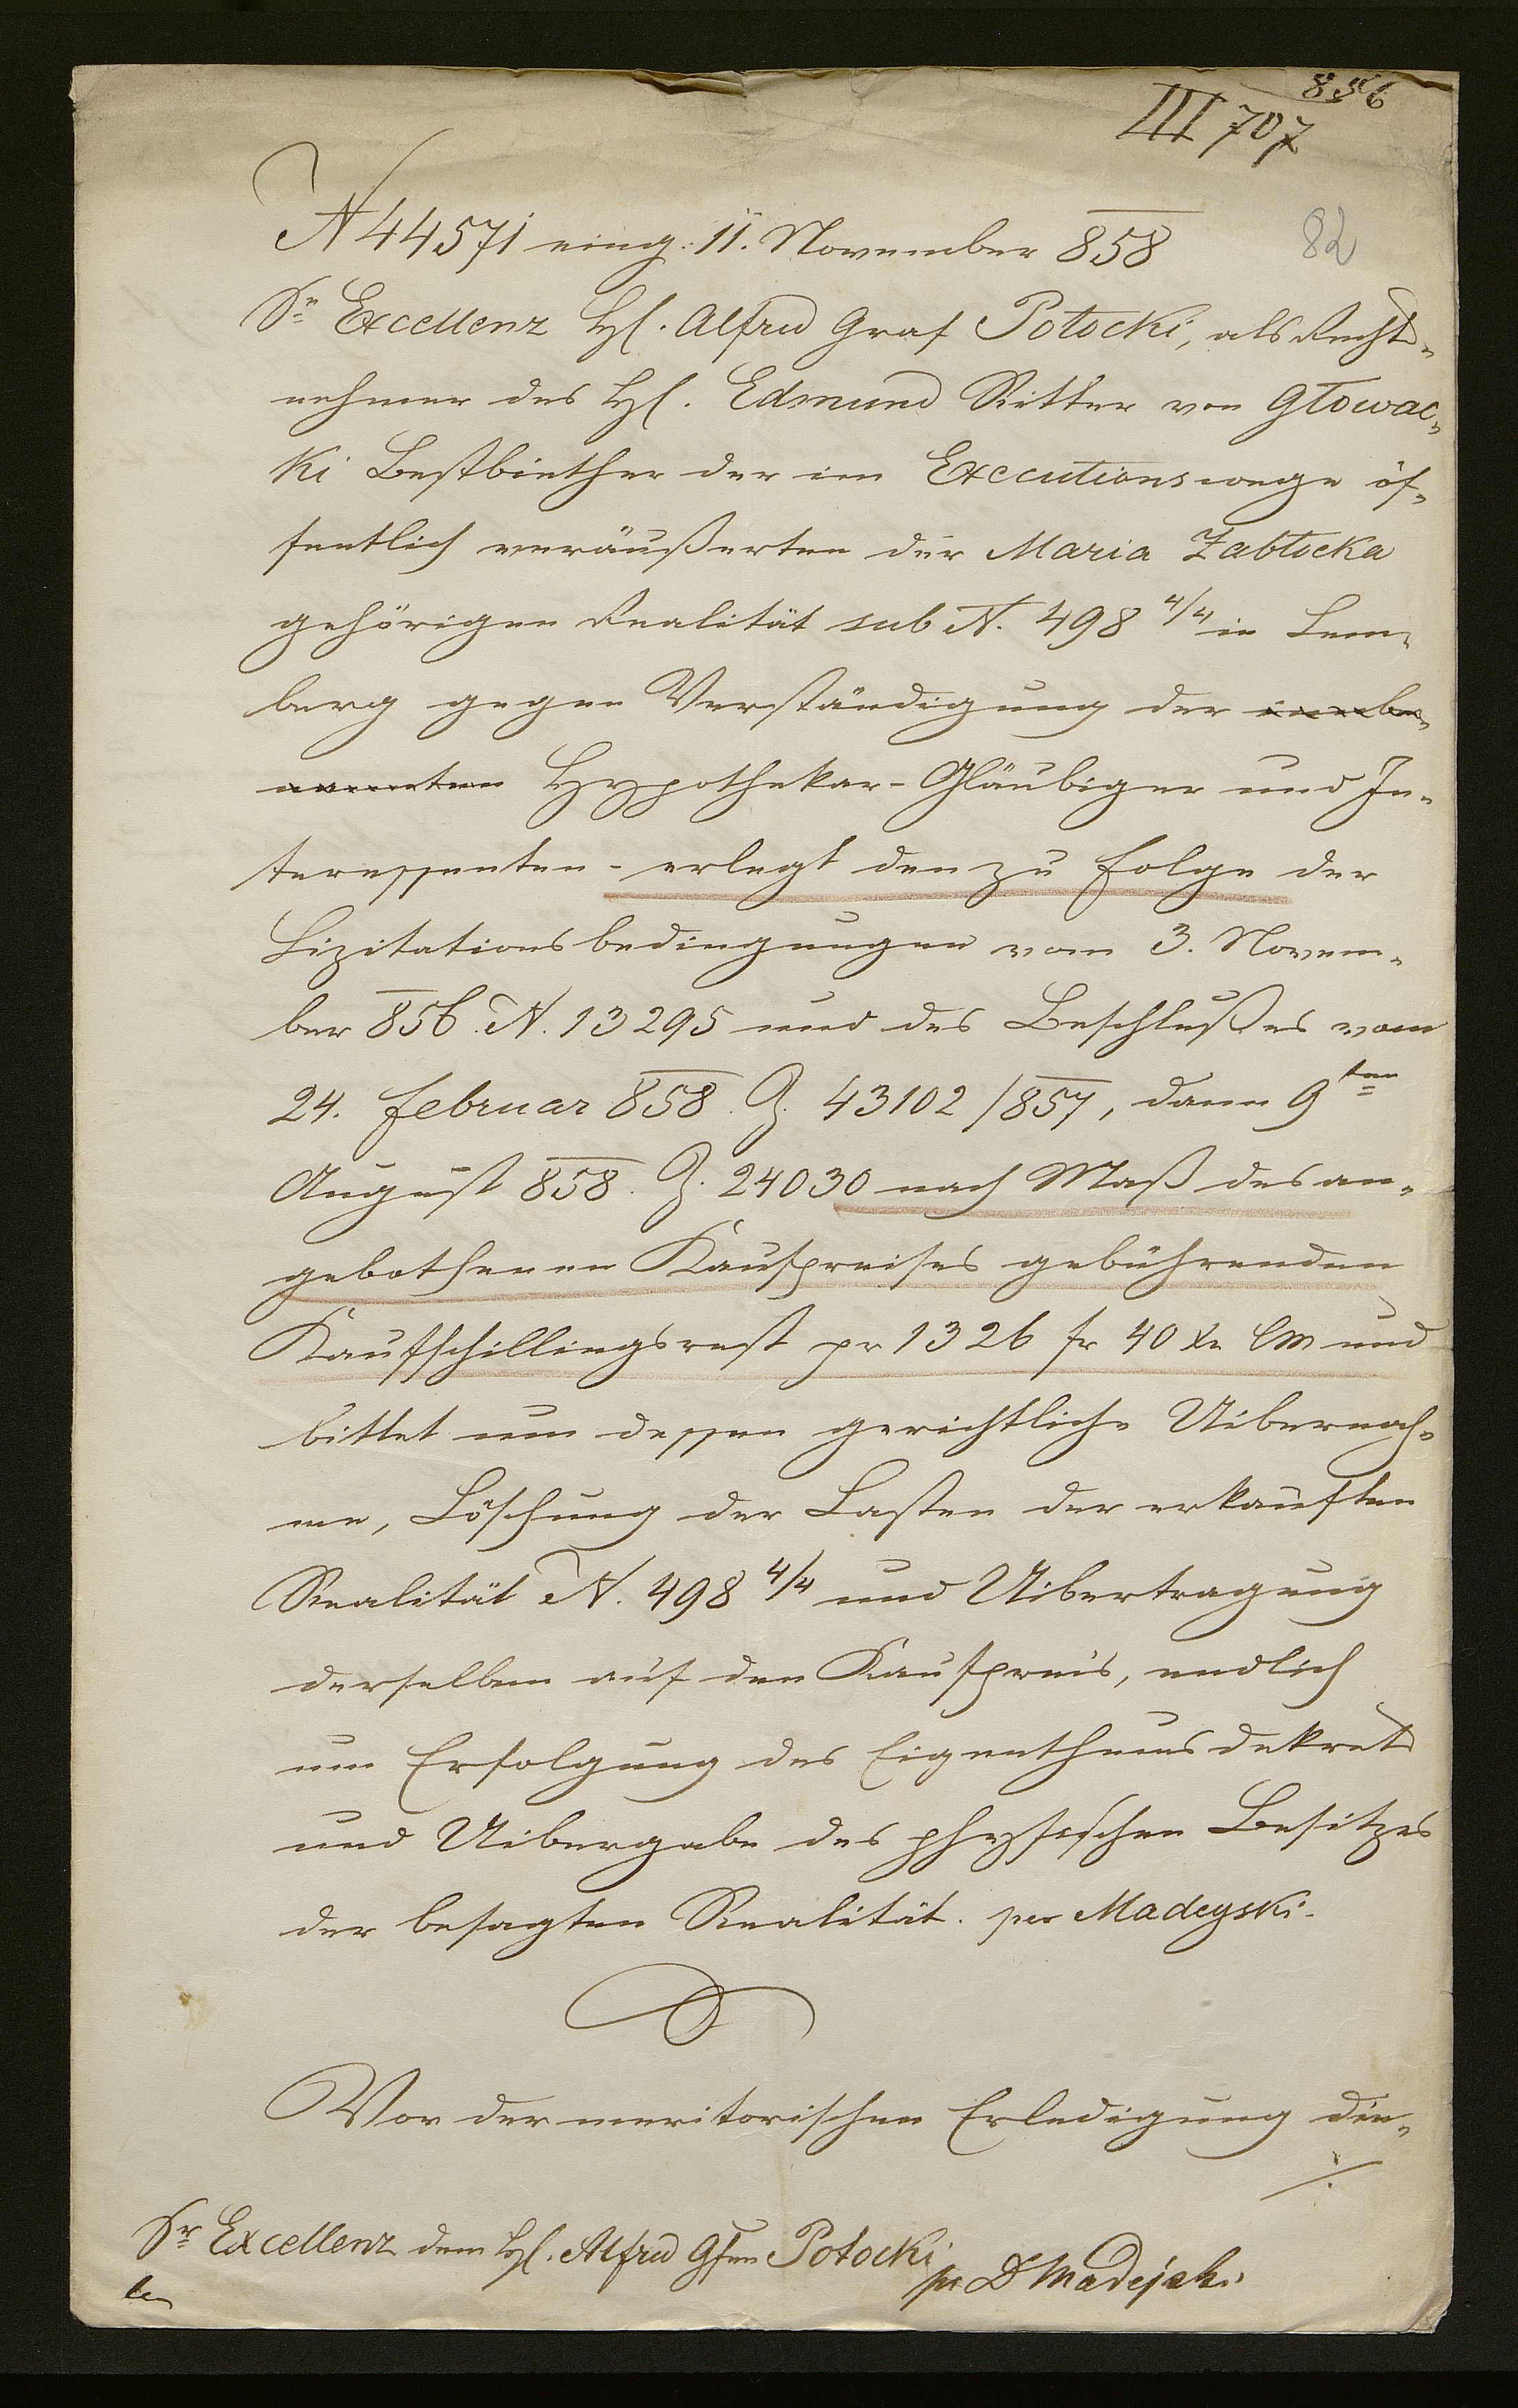 856
III 707
82
N 44571 eing. 11. November 858
Sr Excellenz H. Alfred Graf Potocki, als Rechts-
nehmer des H. Edmund Ritter von Głowac-
ki Bestbiether der im Executionswege öf-
fentlich veräußerten der Maria Zabłocka
gehörigen Realität sub N. 498 4/4 in Lem-
berg gegen Verständigung der innbe-
nannten Hypothekar-Gläubiger und In-
teressenten - erlegt den zu Folge der
Lizitationsbedingungen vom 3. Novem-
ber 856. N. 13295 und des Beschlußes vom
24. Februar 858. Z. 43102/857, dann 9ten
August 858. Z. 24030 nach Maß des an-
gebothenen Kaufpreises gebührenden
Kaufschillingsrest pr 1326 fr 40 xr CM und
bittet um dessen gerichtliche Uibernah-
me, Löschung der Lasten der erkauften
Realität N. 498 4/4 und Uibertragung
derselben auf den Kaufpreis, endlich
um Erfolgung des Eigenthumsdekrets
und Uibergabe des physischen Besitzes
der besagten Realität. per Madeyski.
Vor der meritorischen Erledigung die-
./.
Sr Excellenz dem H. Alfred Gfen Potocki
pr Dr Madejski